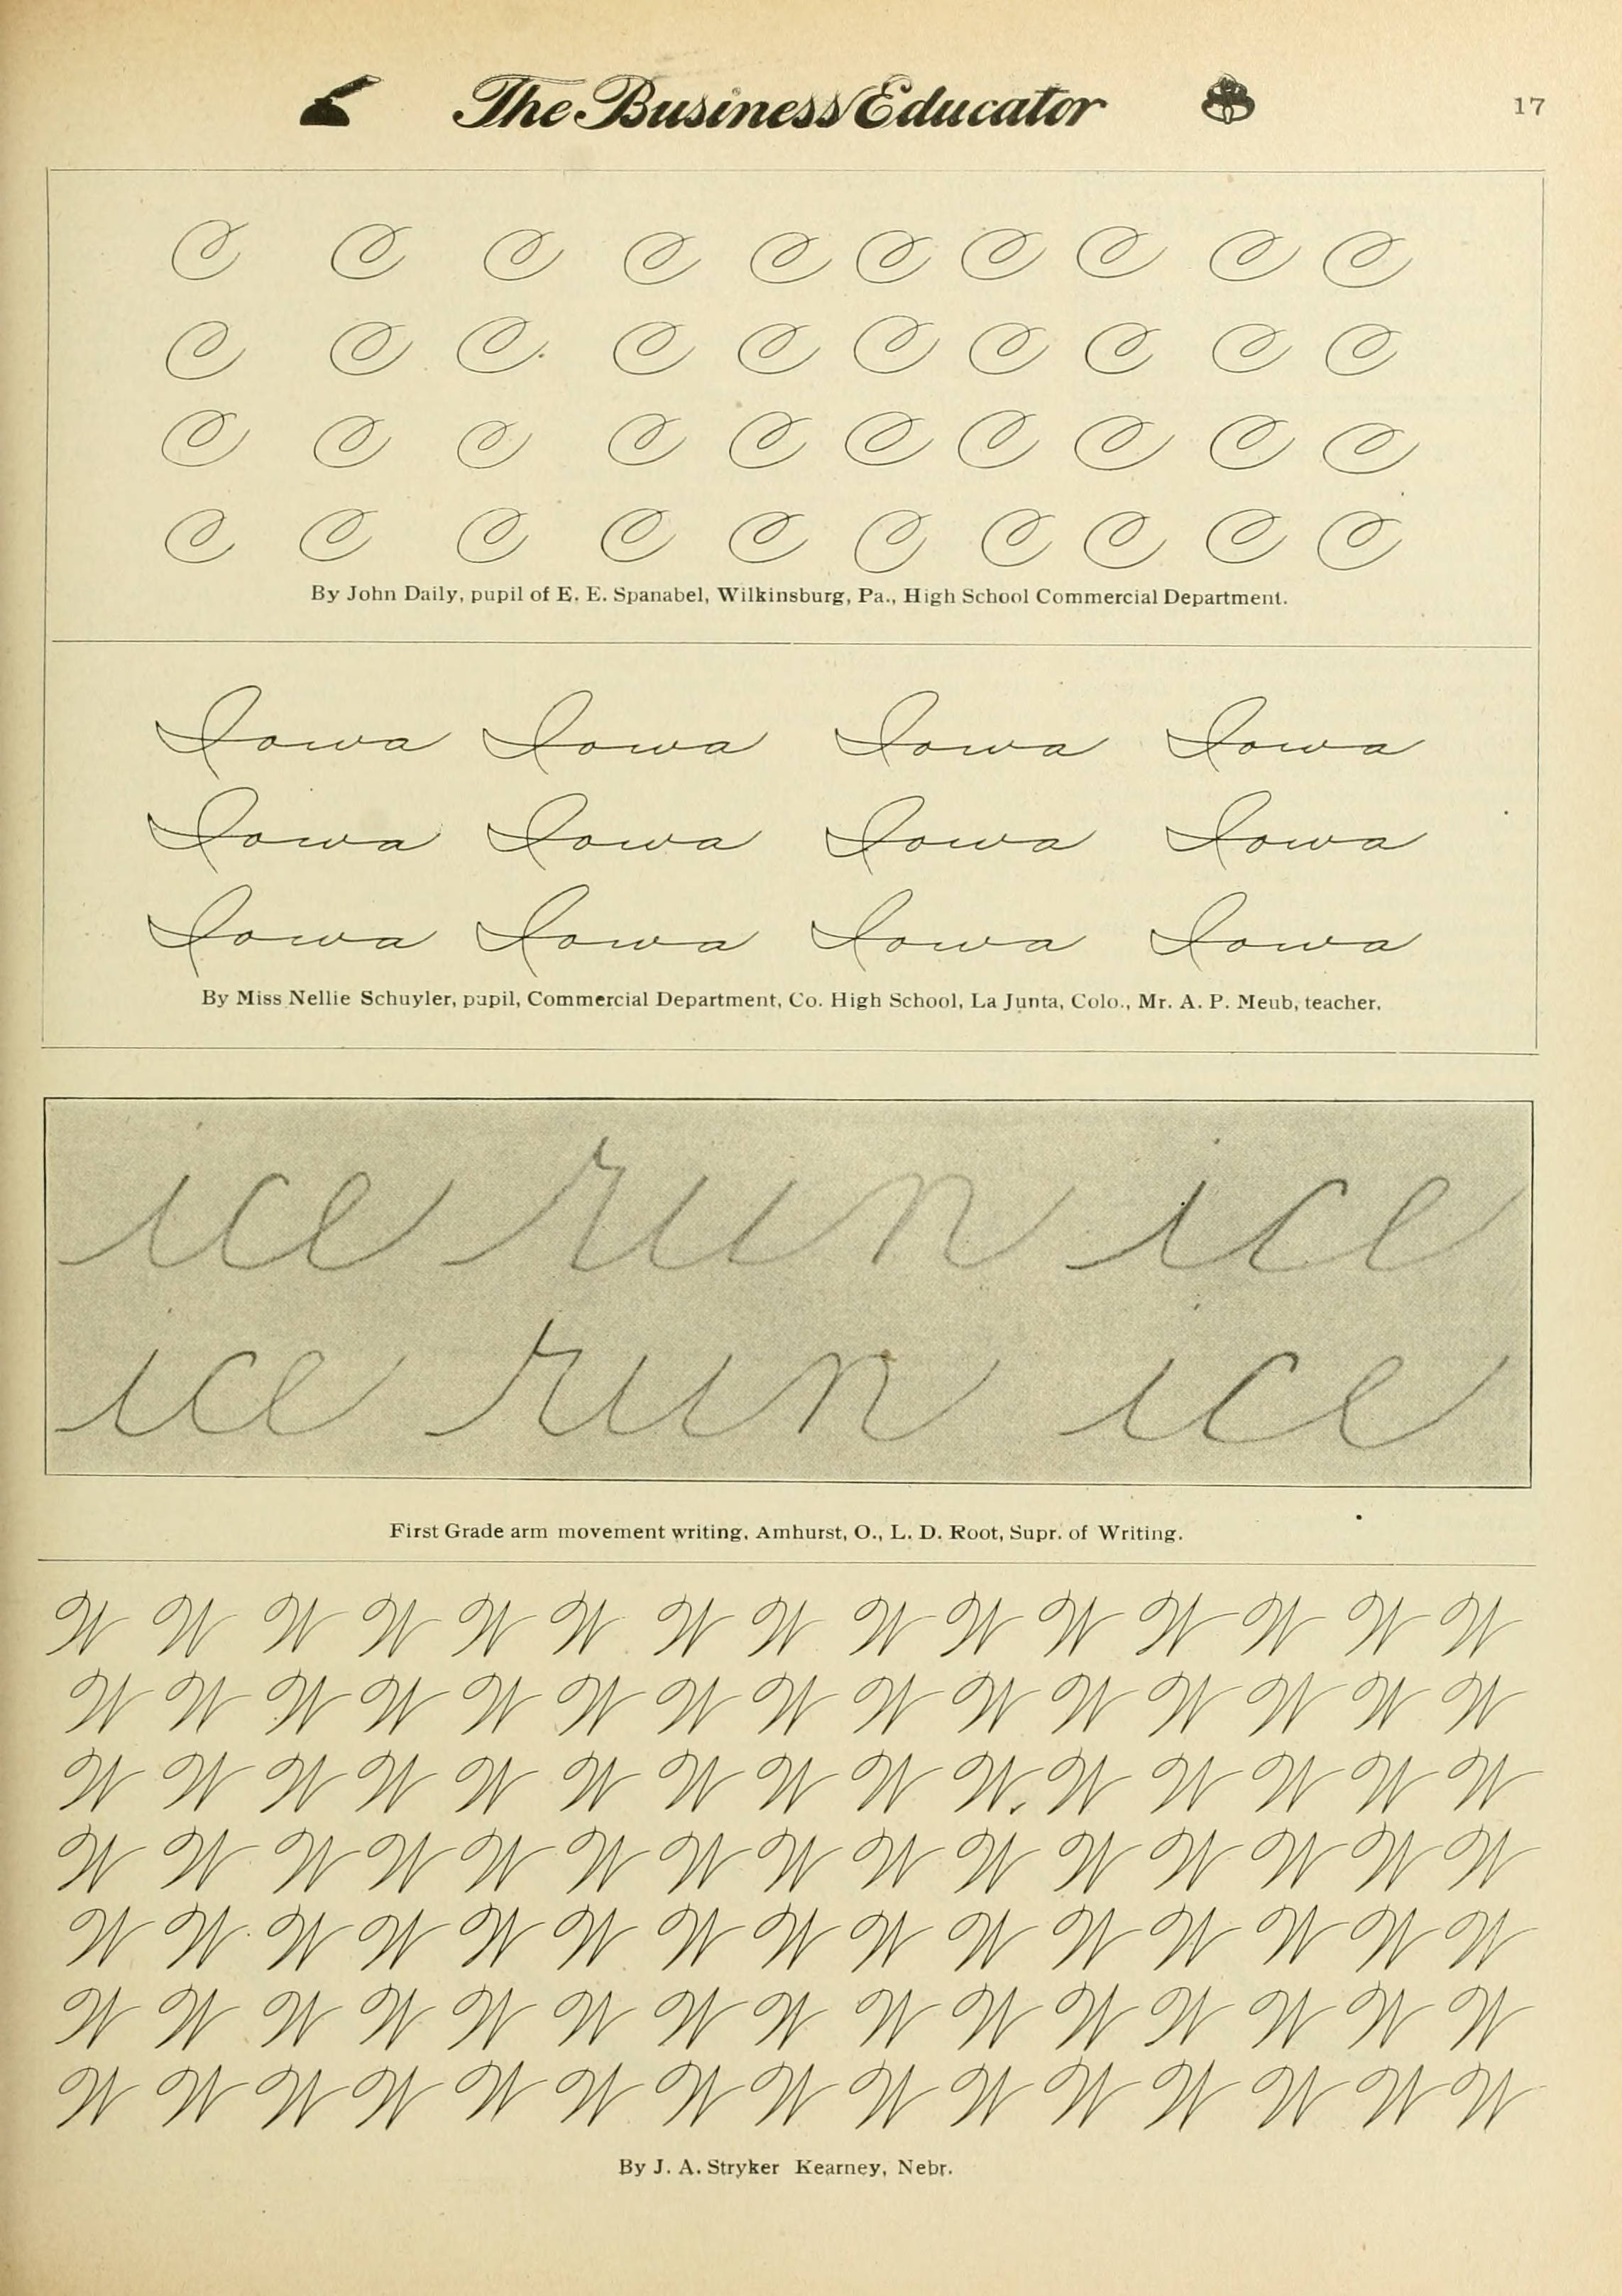 The Business Educator 17
C C C C C C C C C C
C C C C C C C C C C
C C C C C C C C C C
C C C C C C C C C C
By John Daily, pupil of E. E. Spanabel, Wilkinsburg, Pa., High School Commercial Department.
Iowa Iowa Iowa Iowa
Iowa Iowa Iowa Iowa
Iowa Iowa Iowa Iowa
By Miss Nellie Schuyler, pupil, Commercial Department, Co. High School, La Junta, Colo., Mr. A. P. Meub, teacher.
ice run ice
ice run ice
First Grade arm movement writing, Amhurst, O., L. D. Root, Supr. of Writing.
W W W W W W W W W W W W W W W
W W W W W W W W W W W W W W W
W W W W W W W W W W W W W W W
W W W W W W W W W W W W W W W
W W W W W W W W W W W W W W W
W W W W W W W W W W W W W W W
W W W W W W W W W W W W W W W
By J. A. Stryker Kearney, Nebr.